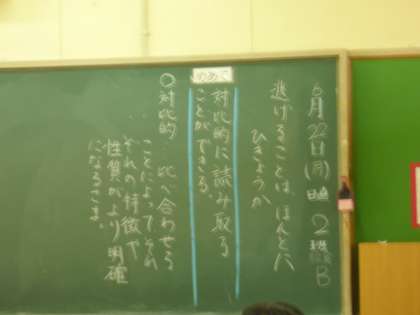 6月22日(月) 2
逃げることは、ほんとに
ひきょうか
めあて
対比的に読み取る
ことができる。
○対比的…比べ合わせる
ことによって、それ
ぞれの特徴や
性質がより明確
になるさま。